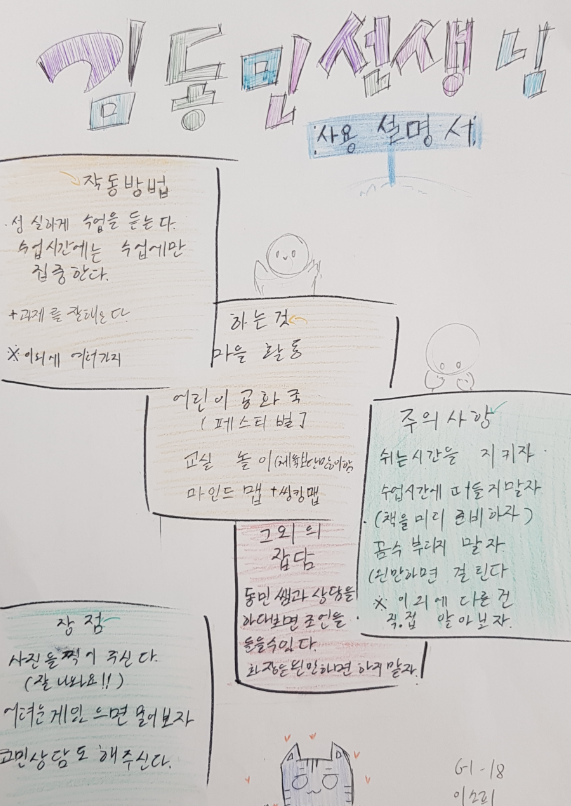 김동민선생님
사용 설명서
작동방법
· 성실하게 수업을 듣는다.
수업시간에는 수업에만
집중한다.
+과제를 잘해온다
※이외에 여러가지
하는것
마을 활동
어린이 공화국
[페스티벌]
교실 놀이
마인드 맵 + 씽킹맵
주의사항
쉬는시간을 지키자
수업시간에 떠들지말자
(책을 미리 준비하자)
꼼수 부리지 말자
(왠만하면 걸린다
※ 이외에 다른건
직접 알아보자.
그외의
잡담
동민 쌤과 상담을
하다보면 조언을
들을수있다.
화장은 왠만하면 하지말자.
장점
사진을 찍어 주신다.
(잘 나와요!!)
어려운게 있으면 물어보자
고민상담도 해주신다.
G1-18